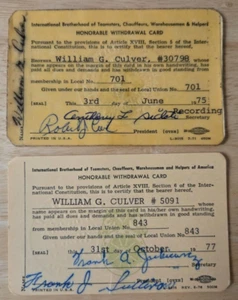 International Brotherhood of Teamsters, Chauffeurs, Warehousemen & Helpers
HONORABLE WITHDRAWAL CARD
Pursuant to the provisions of Article XVIII, Section 6 of the
International Constitution, this is to certify that the bearer hereof,
William G. Culver, #30798
whose name appears on the margin of this card in his own hand-
has paid all dues and demands and has withdrawn in good standing
from membership in Local Union No. 701
Given under our hands and the seal of Local Union No. 701
(seal) This 3rd day of June 1975
Recording
President
PRINTED IN U.S.A.
William G Culver
International Brotherhood of Teamsters, Chauffeurs, Warehousemen and Helpers of America
HONORABLE WITHDRAWAL CARD
Pursuant to the provisions of Article XVIII, Section 6 of the
International Constitution, this is to certify that the bearer hereof,
WILLIAM G. CULVER # 5091
whose name appears on the margin in his own hand-
has paid all dues and demands and has withdrawn in good standing
from membership in Local Union No. 843
Given under our hands and the seal of Local Union No. 843
(seal) This 31st day of October, 1977
Frank
Frank J.
PRINTED IN U.S.A.